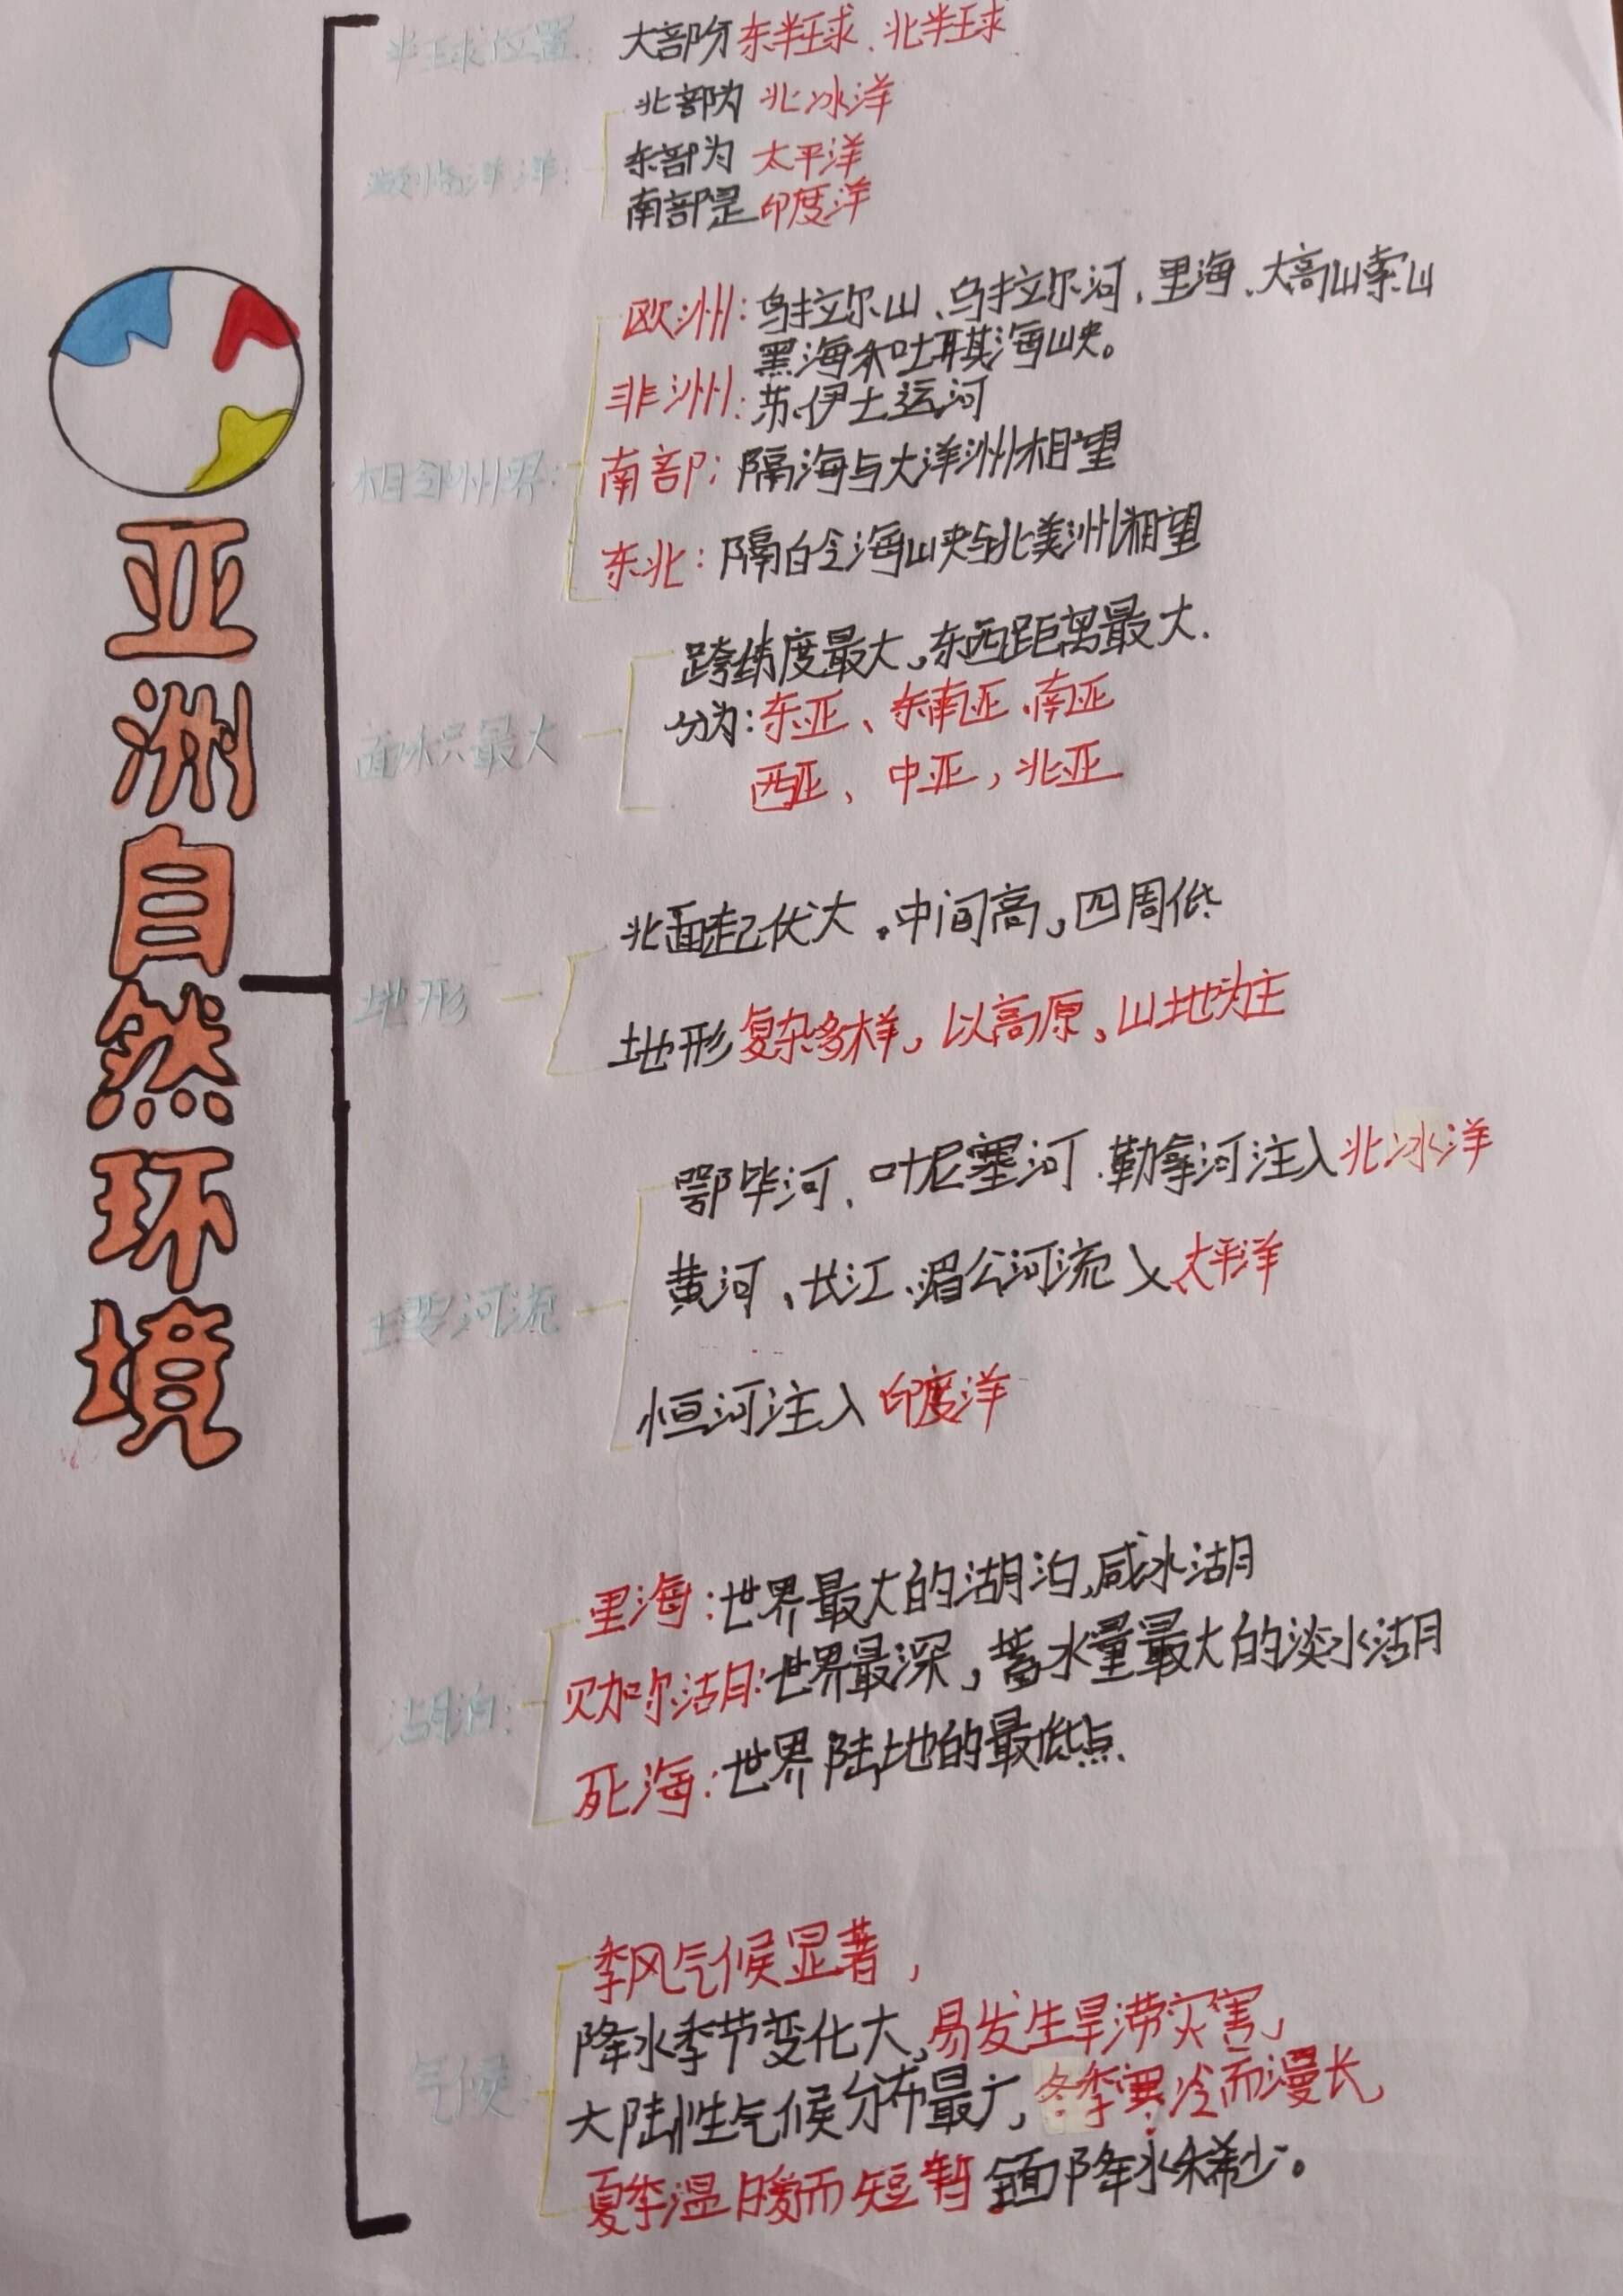 亚洲自然环境
半球位置：大部分东半球、北半球
濒临洋洋：
北部为 北冰洋
东部为 太平洋
南部是 印度洋
相邻州界：
欧洲：乌拉尔山、乌拉尔河、里海、大高加索山
黑海和土耳其海峡。
非洲：苏伊士运河
南部：隔海与大洋洲相望
东北：隔白令海峡与北美洲相望
面积最大
跨纬度最大、东西距离最大.
分为：东亚、东南亚、南亚
西亚、中亚，北亚
地形
北面起伏大。中间高、四周低
地形复杂多样，以高原、山地为主
主要河流
鄂毕河、叶尼塞河、勒拿河注入北冰洋
黄河、长江、湄公河流入太平洋
恒河注入印度洋
湖泊：
里海：世界最大的湖泊，咸水湖
贝加尔湖：世界最深，蓄水量最大的淡水湖
死海：世界陆地的最低点、
气候：
季风气候显著，
降水季节变化大，易发生旱涝灾害，
大陆性气候分布最广，冬季寒冷而漫长，
夏季温暖而短暂 全面降水稀少。